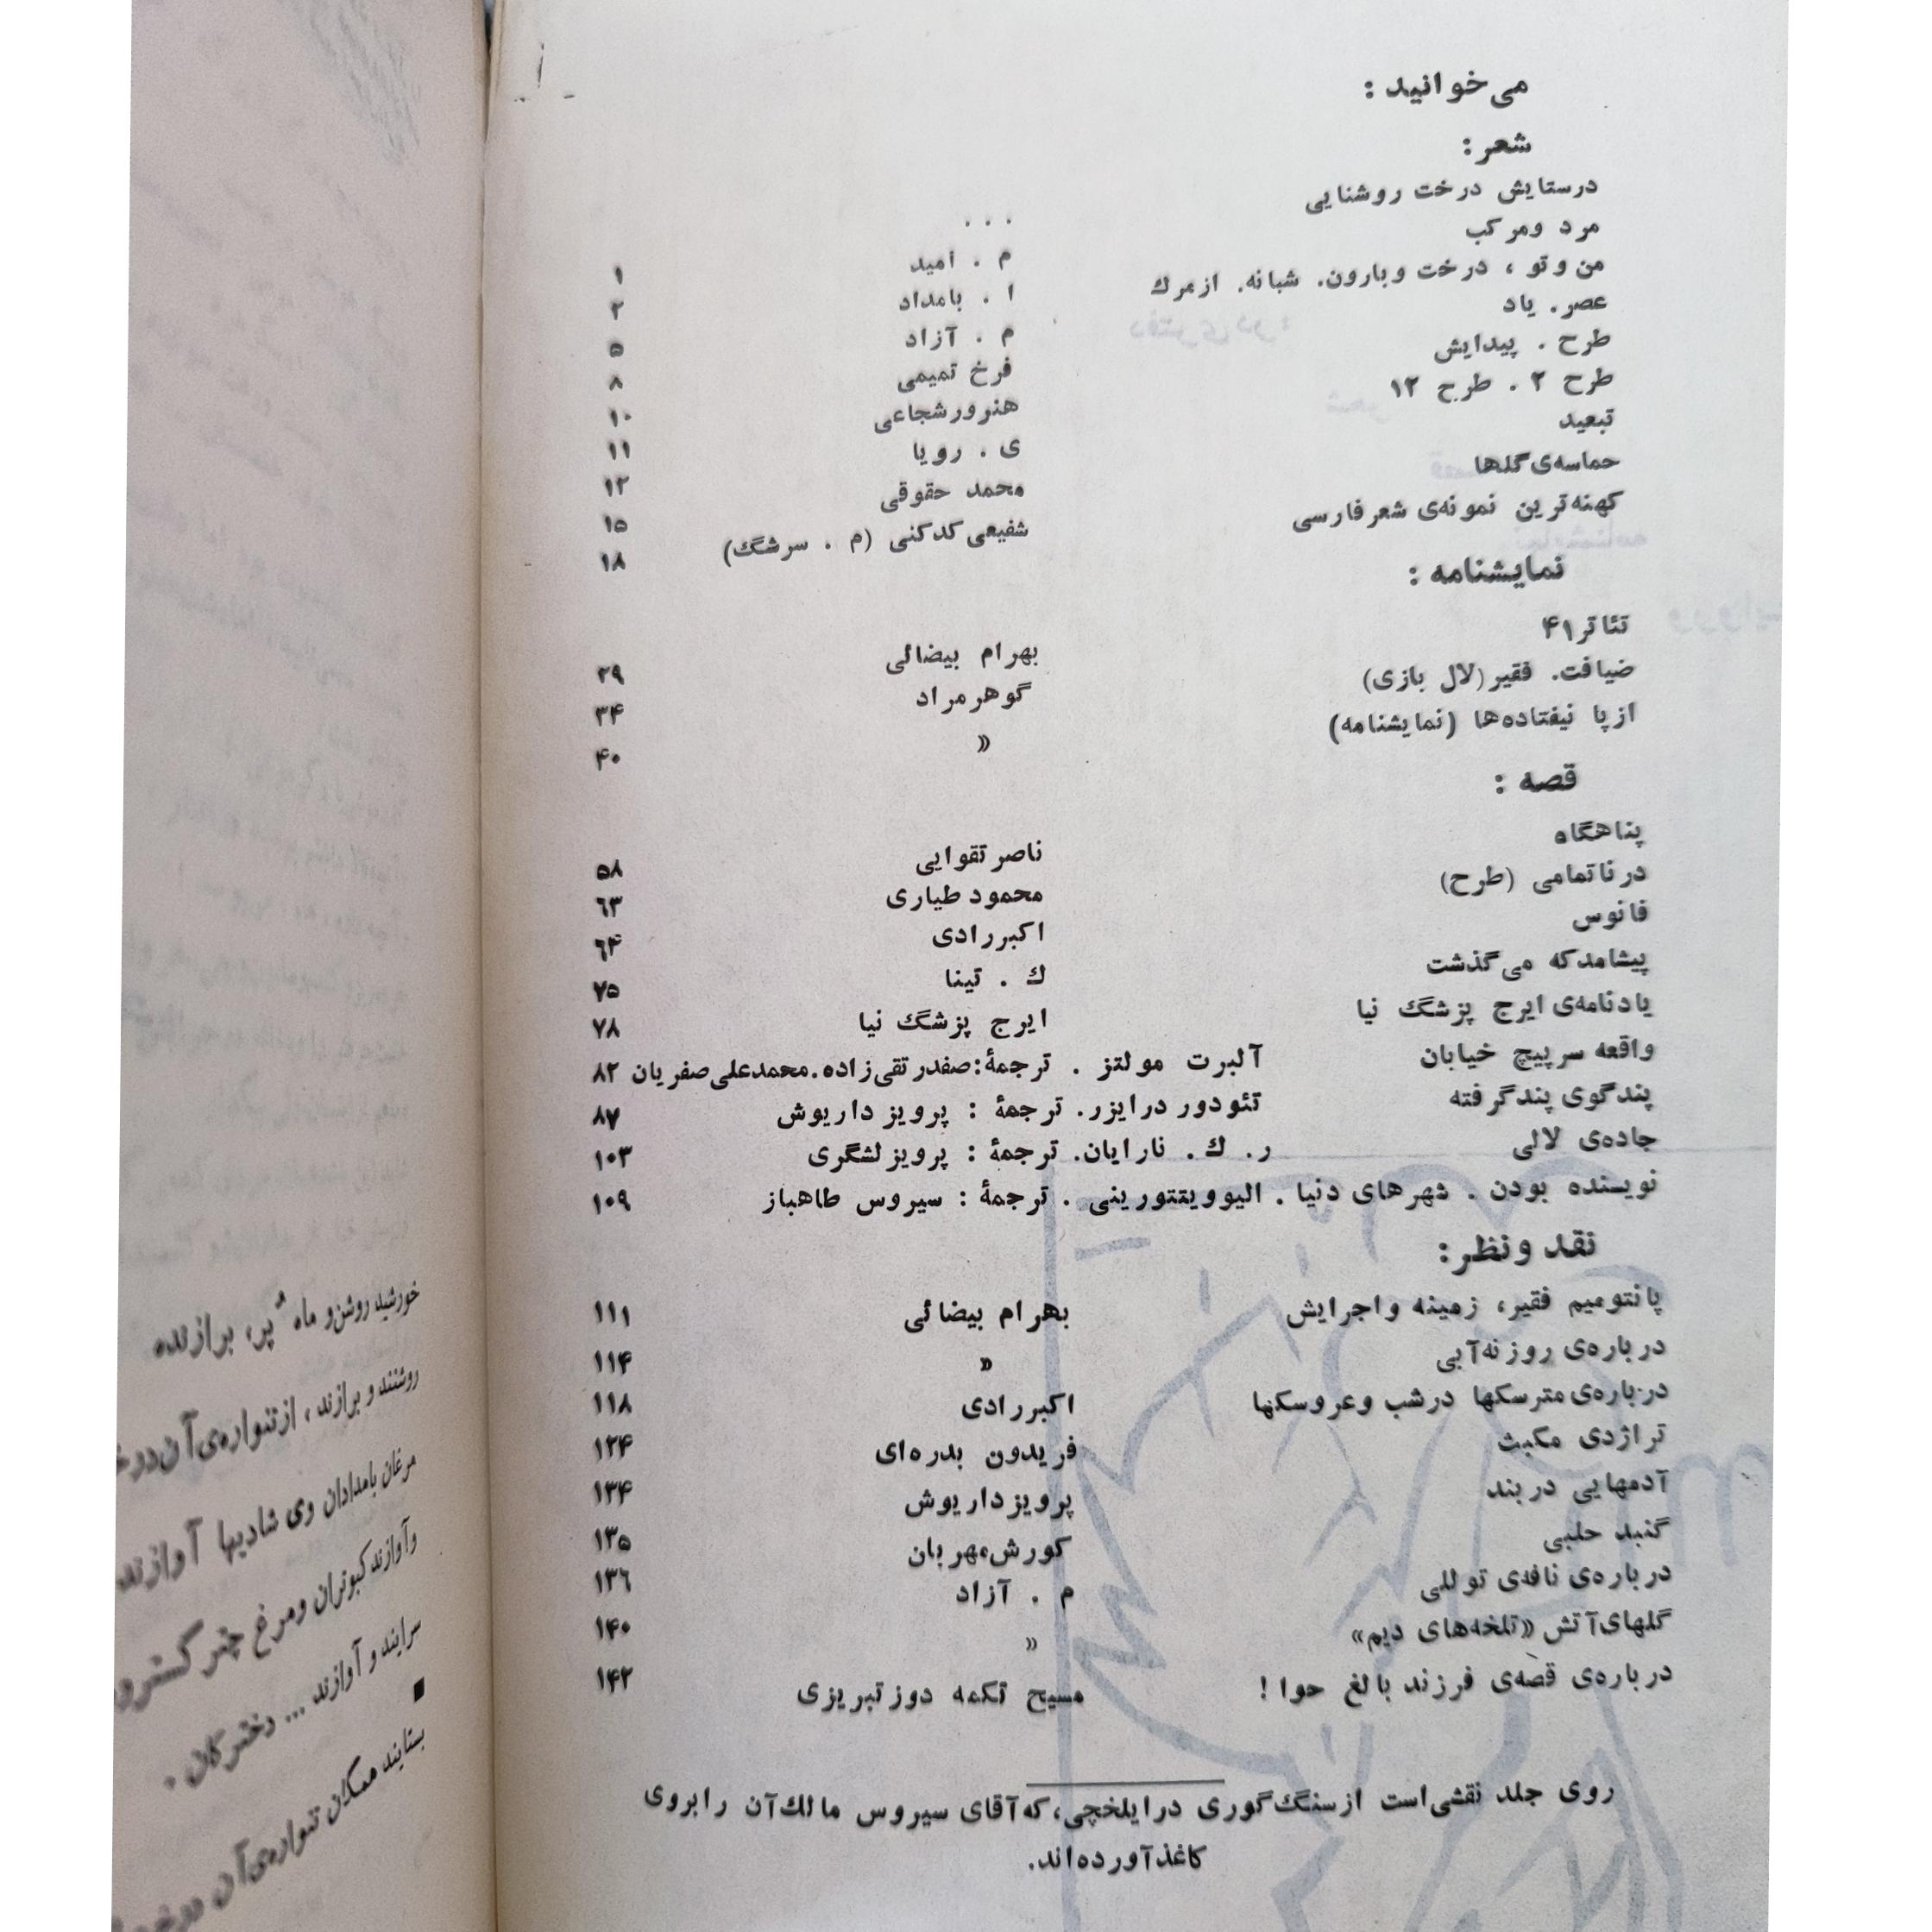 می‌خوانید :
شعر :
درستایش درخت روشنایی . . . ۱
مرد ومرکب م . امید ۲
من و تو ، درخت وبارون. شبانه. ازمرك ا . بامداد ۵
عصر. یاد م . آزاد ۸
طرح . پیدایش فرخ تمیمی ۱۰
طرح ۲ . طرح ۱۲ هنرورشجاعی ۱۱
تبعید ی . رویا ۱۲
حماسه‌ی گلها محمد حقوقی ۱۵
کهنه‌ترین نمونه‌ی شعرفارسی شفیعی کدکنی (م . سرشگ) ۱۸
نمایشنامه :
تئاتر۴۱ بهرام بیضائی ۲۹
ضیافت. فقیر(لال بازی) گوهرمراد ۳۴
ازپا نیفتاده‌ها (نمایشنامه) » ۴۰
قصه :
پناهگاه ناصرتقوایی ۵۸
درناتمامی (طرح) محمودطیاری ۶۳
فانوس اکبررادی ۶۴
پیشامدکه می‌گذشت ك . تینا ۷۵
یادنامه‌ی ایرج پزشگ نیا ایرج پزشگ نیا ۷۸
واقعه سرپیچ خیابان آلبرت مولتز . ترجمهٔ:صفدرتقی‌زاده.محمدعلی‌صفریان ۸۲
پندگوی پندگرفته تئودور درایزر. ترجمهٔ : پرویز داریوش ۸۷
جاده‌ی لالی ر. ك. نارایان. ترجمهٔ : پرویزلشگری ۱۰۳
نویسنده بودن . شهرهای دنیا . الیوویتتورینی . ترجمهٔ : سیروس طاهباز ۱۰۹
نقد ونظر:
پانتومیم فقیر، زمینه واجرایش بهرام بیضائی ۱۱۱
درباره‌ی روزنه‌آبی » ۱۱۴
درباره‌ی مترسکها درشب وعروسکها اکبررادی ۱۱۸
تراژدی مکبث فریدون بدره‌ای ۱۲۴
آدمهایی دربند پرویزداریوش ۱۳۴
گنبد حلبی کورش‌مهربان ۱۳۵
درباره‌ی نافه‌ی توللی م . آزاد ۱۳۶
گلهای‌آتش «تلخه‌های دیم» » ۱۴۰
درباره‌ی قصّه‌ی فرزند بالغ حوا ! مسیح تکمه دوزتبریزی ۱۴۲
روی جلد نقشی‌است ازسنگ‌گوری درایلخچی،که‌آقای سیروس مالك‌آن رابروی
کاغذآورده‌اند.
خورشید روشن و ماه پُر، برازنده
روشنند و برازند ، ازتنواره‌ی‌آن
مرغان بامدادان وی شادیها آوازند
وآوازند کبوتران ومرغ چتر
سرایند و آوازند ... دخترکان .
■
بستایند همگان تنواره‌ی‌آن